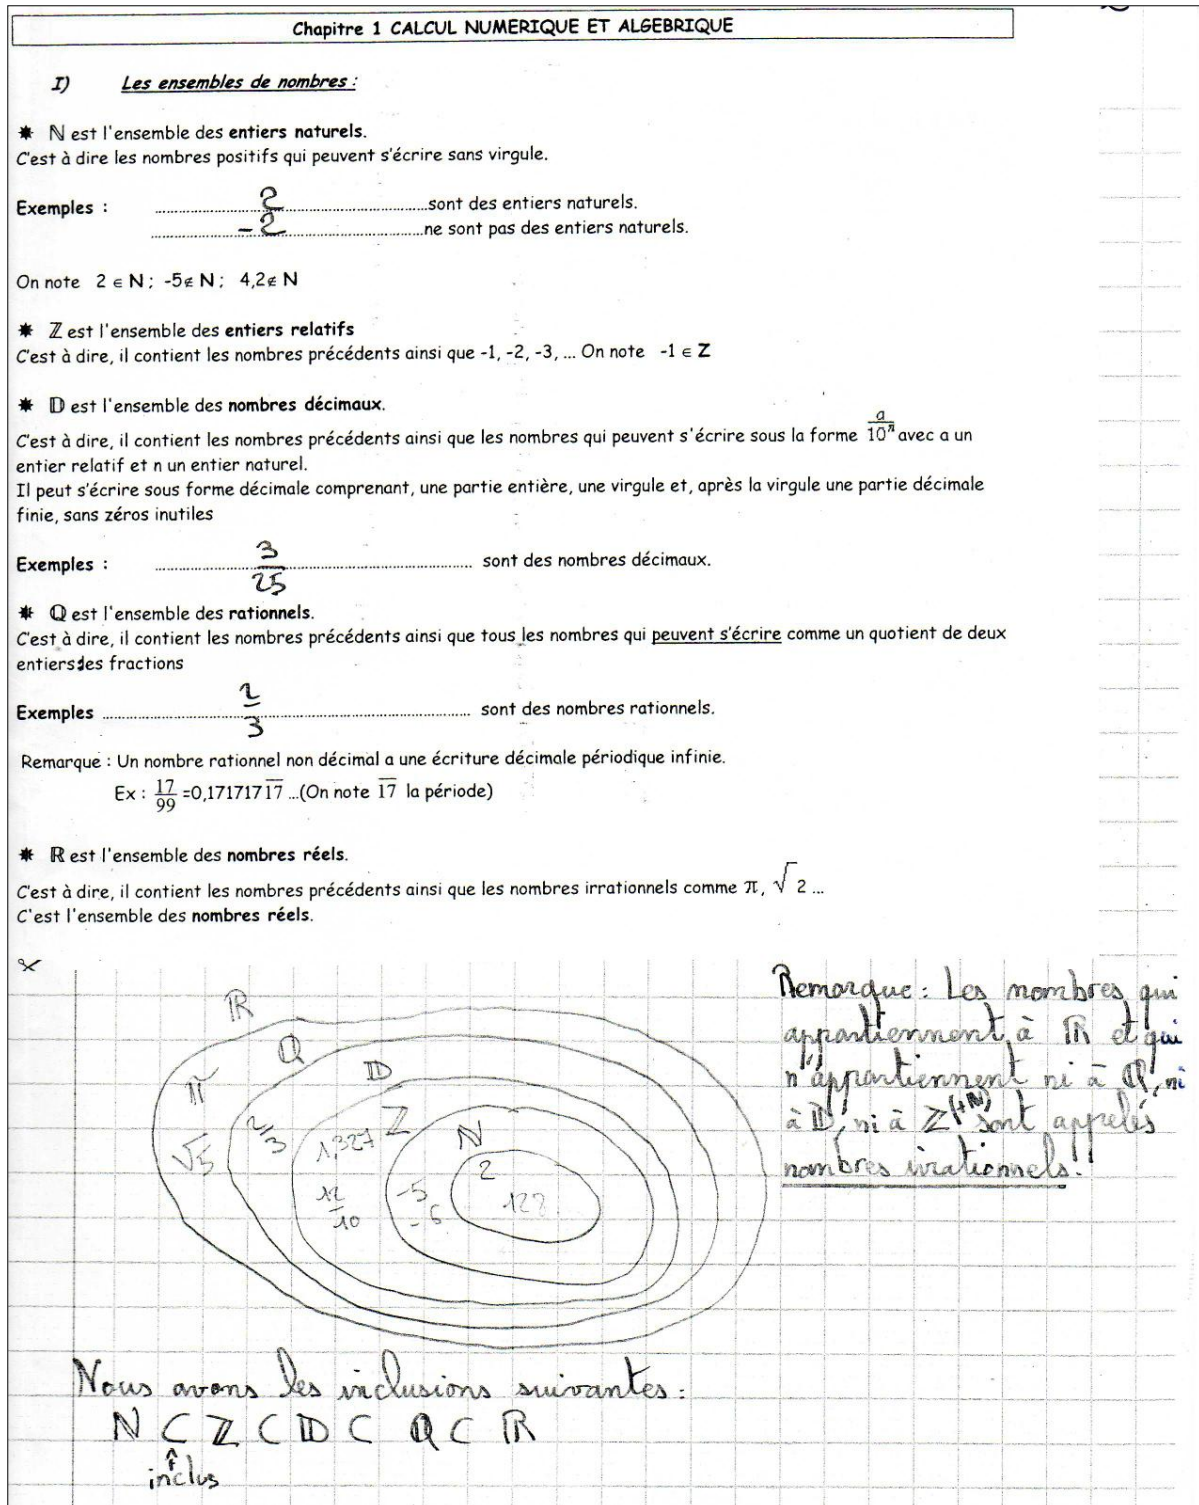 Chapitre 1 CALCUL NUMERIQUE ET ALGEBRIQUE
I) Les ensembles de nombres :
✷ ℕ est l'ensemble des entiers naturels.
C'est à dire les nombres positifs qui peuvent s'écrire sans virgule.
Exemples : ........2........sont des entiers naturels.
........-2........ne sont pas des entiers naturels.
On note 2 ∈ N ; -5∉ N ; 4,2∉ N
✷ ℤ est l'ensemble des entiers relatifs
C'est à dire, il contient les nombres précédents ainsi que -1, -2, -3, ... On note -1 ∈ Z
✷ 𝔻 est l'ensemble des nombres décimaux.
C'est à dire, il contient les nombres précédents ainsi que les nombres qui peuvent s'écrire sous la forme a/10ⁿ avec a un
entier relatif et n un entier naturel.
Il peut s'écrire sous forme décimale comprenant, une partie entière, une virgule et, après la virgule une partie décimale
finie, sans zéros inutiles
Exemples : ........3/25........ sont des nombres décimaux.
✷ ℚ est l'ensemble des rationnels.
C'est à dire, il contient les nombres précédents ainsi que tous les nombres qui peuvent s'écrire comme un quotient de deux
entiers des fractions
Exemples ........2/3........ sont des nombres rationnels.
Remarque : Un nombre rationnel non décimal a une écriture décimale périodique infinie.
Ex : 17/99 =0,171717‾17 ...(On note ‾17 la période)
✷ ℝ est l'ensemble des nombres réels.
C'est à dire, il contient les nombres précédents ainsi que les nombres irrationnels comme π, √2 ...
C'est l'ensemble des nombres réels.
ℝ
ℚ
𝔻
π
2/3
1,327
ℤ
ℕ
√5
12/10
-5
-6
2
122
Remarque : Les nombres qui
appartiennent à ℝ et qui
n'appartiennent ni à ℚ, ni
à 𝔻, ni à ℤ (+ℕ) sont appelés
nombres irrationnels.
Nous avons les inclusions suivantes :
ℕ ⊂ ℤ ⊂ 𝔻 ⊂ ℚ ⊂ ℝ
↑
inclus